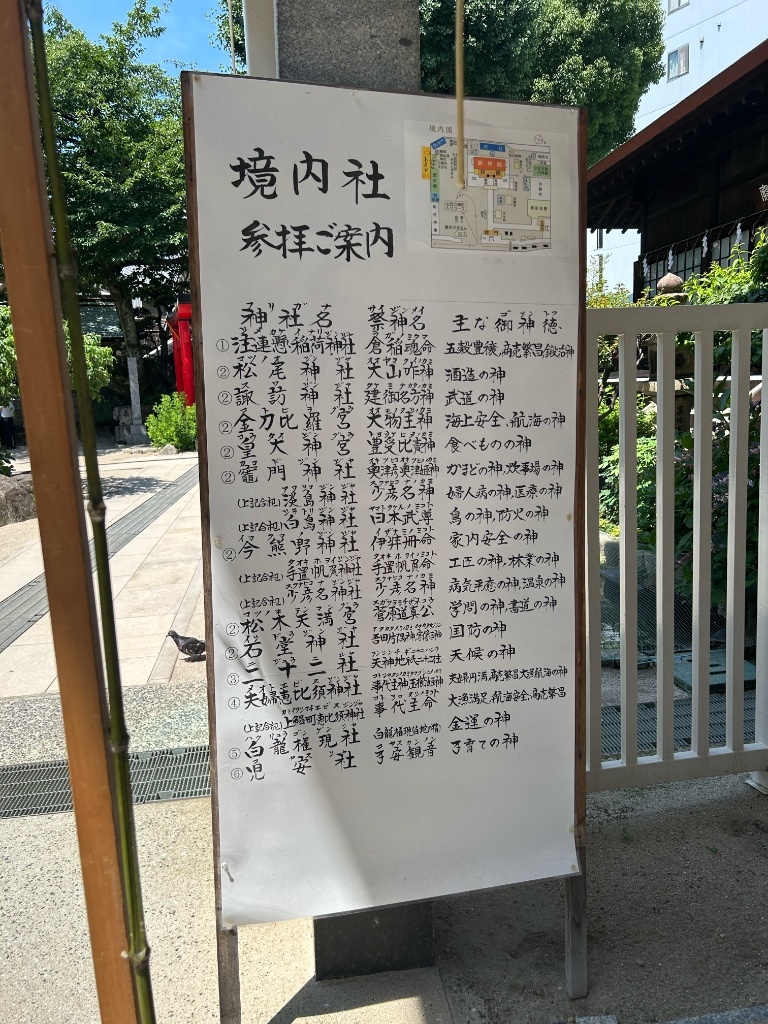 境内社
参拝ご案内
境内図
神社名 祭神名 主な御神徳
①注連懸稲荷神社 倉稲魂命 五穀豊穣、商売繁昌、鍛冶神
②松尾神社 大山咋神 酒造の神
②諏訪神社 建御名方神 武道の神
②金力比羅宮 大物主神 海上安全、航海の神
②皇大神宮 豊受比賣神 食べものの神
②竈門神社 奥津彦奥津姫神 かまどの神、炊事場の神
(上記合祀)淡島神社 少彦名神 婦人病の神、医療の神
(上記合祀)白鳥神社 日本武尊 鳥の神、防火の神
②今熊野神社 伊弉冊命 家内安全の神
(上記合祀)手置帆負神社 手置帆負命 工匠の神、林業の神
(上記合祀)少彦名神社 少彦名神 病気平癒の神、温泉の神
②松木天満宮 菅原道真公 学問の神、書道の神
②石堂神社 国防の神
③二十二社 天神地祇二十二社 天候の神
④夫婦恵比須神社 夫婦円満、商売繁昌、大漁航海の神
(上記合祀)上鰯町恵比須神社 事代主命 大漁満足、航海安全、商売繁昌
⑤白龍権現社 金運の神
⑥児安社 子安観音 子育ての神